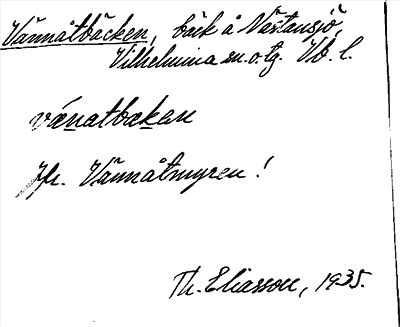 Vännåtbäcken, bäck å Västansjö,
Vilhelmina sn o. tg. Vb. l.
vänatbäken
Jfr. Vännåtmyren!
Th. Eliasson, 1935.